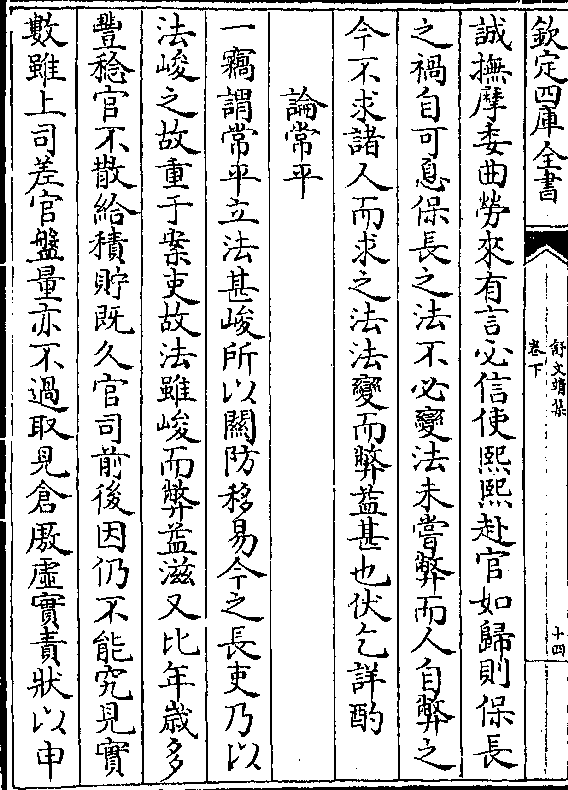 欽定四庫全書
舒文靖集
卷下
十四
誠撫摩委曲勞來有言必信使熙熙赴官如歸則保長
之禍自可息保長之法不必變法未嘗弊而人自弊之
今不求諸人而求之法法變而弊益甚也伏乞詳酌
論常平
一竊謂常平立法甚峻所以關防移易今之長吏乃以
法峻之故重于案吏故法雖峻而弊益滋又比年歲多
豐稔官不散給積貯既久官司前後因仍不能究見實
數雖上司差官盤量亦不過取見倉厫虛實責狀以申